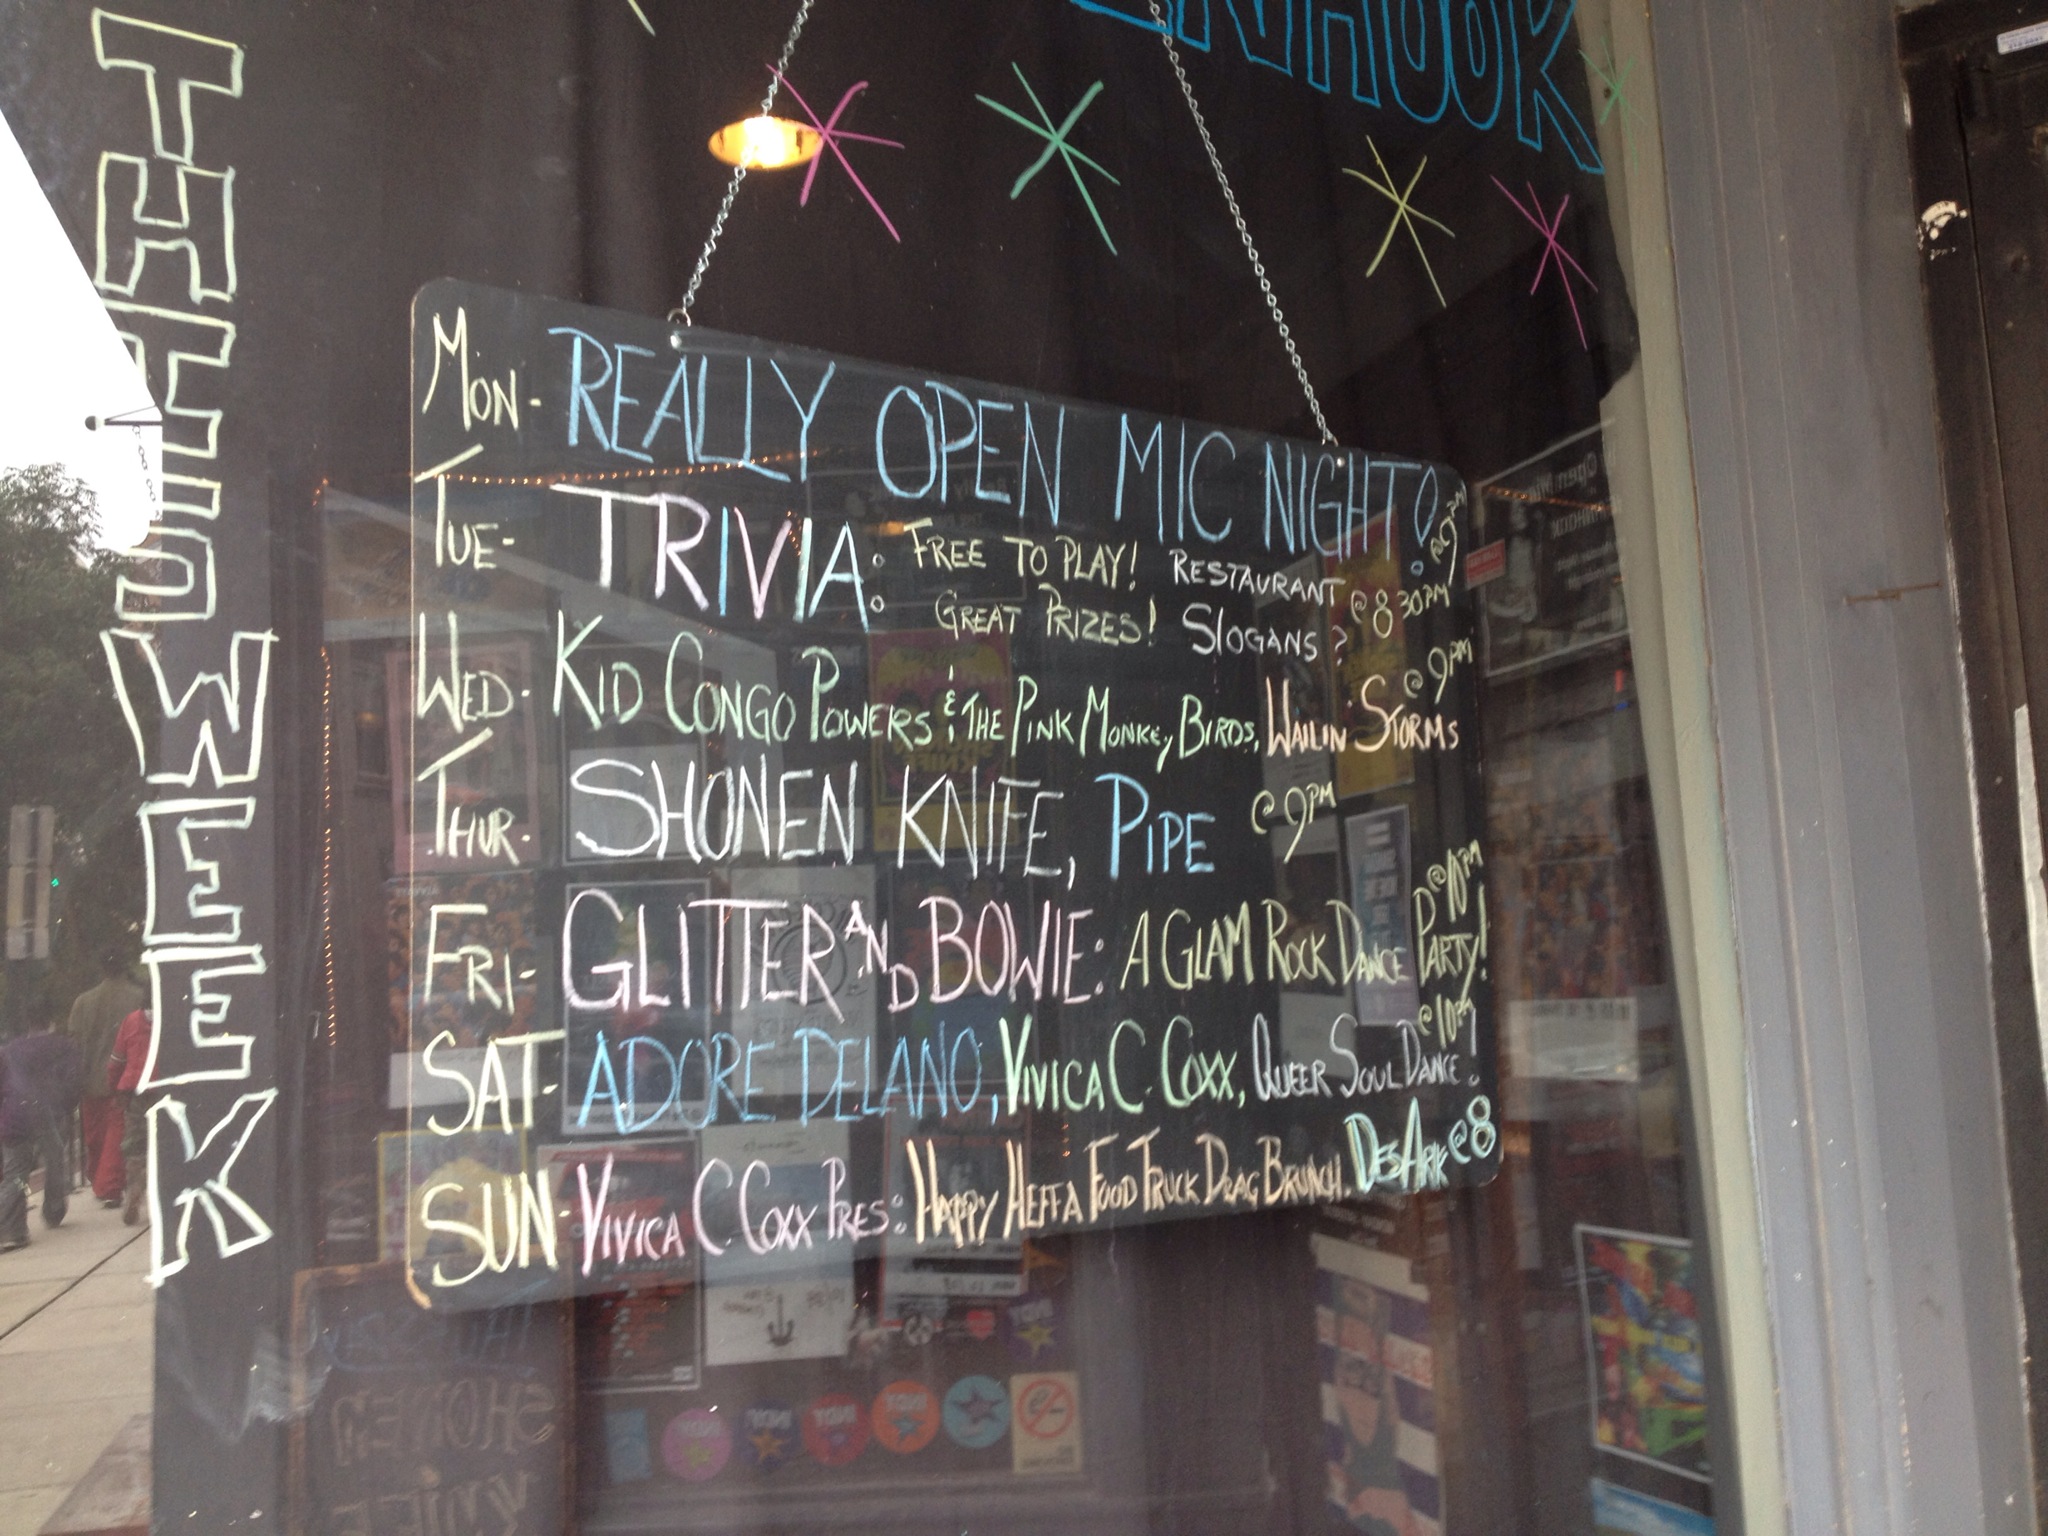 THIS WEEK
MON- REALLY OPEN MIC NIGHT! @9PM
TUE- TRIVIA: FREE TO PLAY! GREAT PRIZES! RESTAURANT SLOGANS? @8 30PM
WED- KID CONGO POWERS & THE PINK MONKEY BIRDS, WAILIN STORMS @9PM
THUR- SHONEN KNIFE, PIPE @9PM
FRI- GLITTER AND BOWIE: A GLAM ROCK DANCE PARTY! @10PM
SAT- ADORE DELANO, VIVICA C. COXX, QUEER SOUL DANCE! @10PM
SUN- VIVICA C. COXX PRES: HAPPY HEFFA FOOD TRUCK DRAG BRUNCH. DES ARK @8
SHONEN
KNIFE